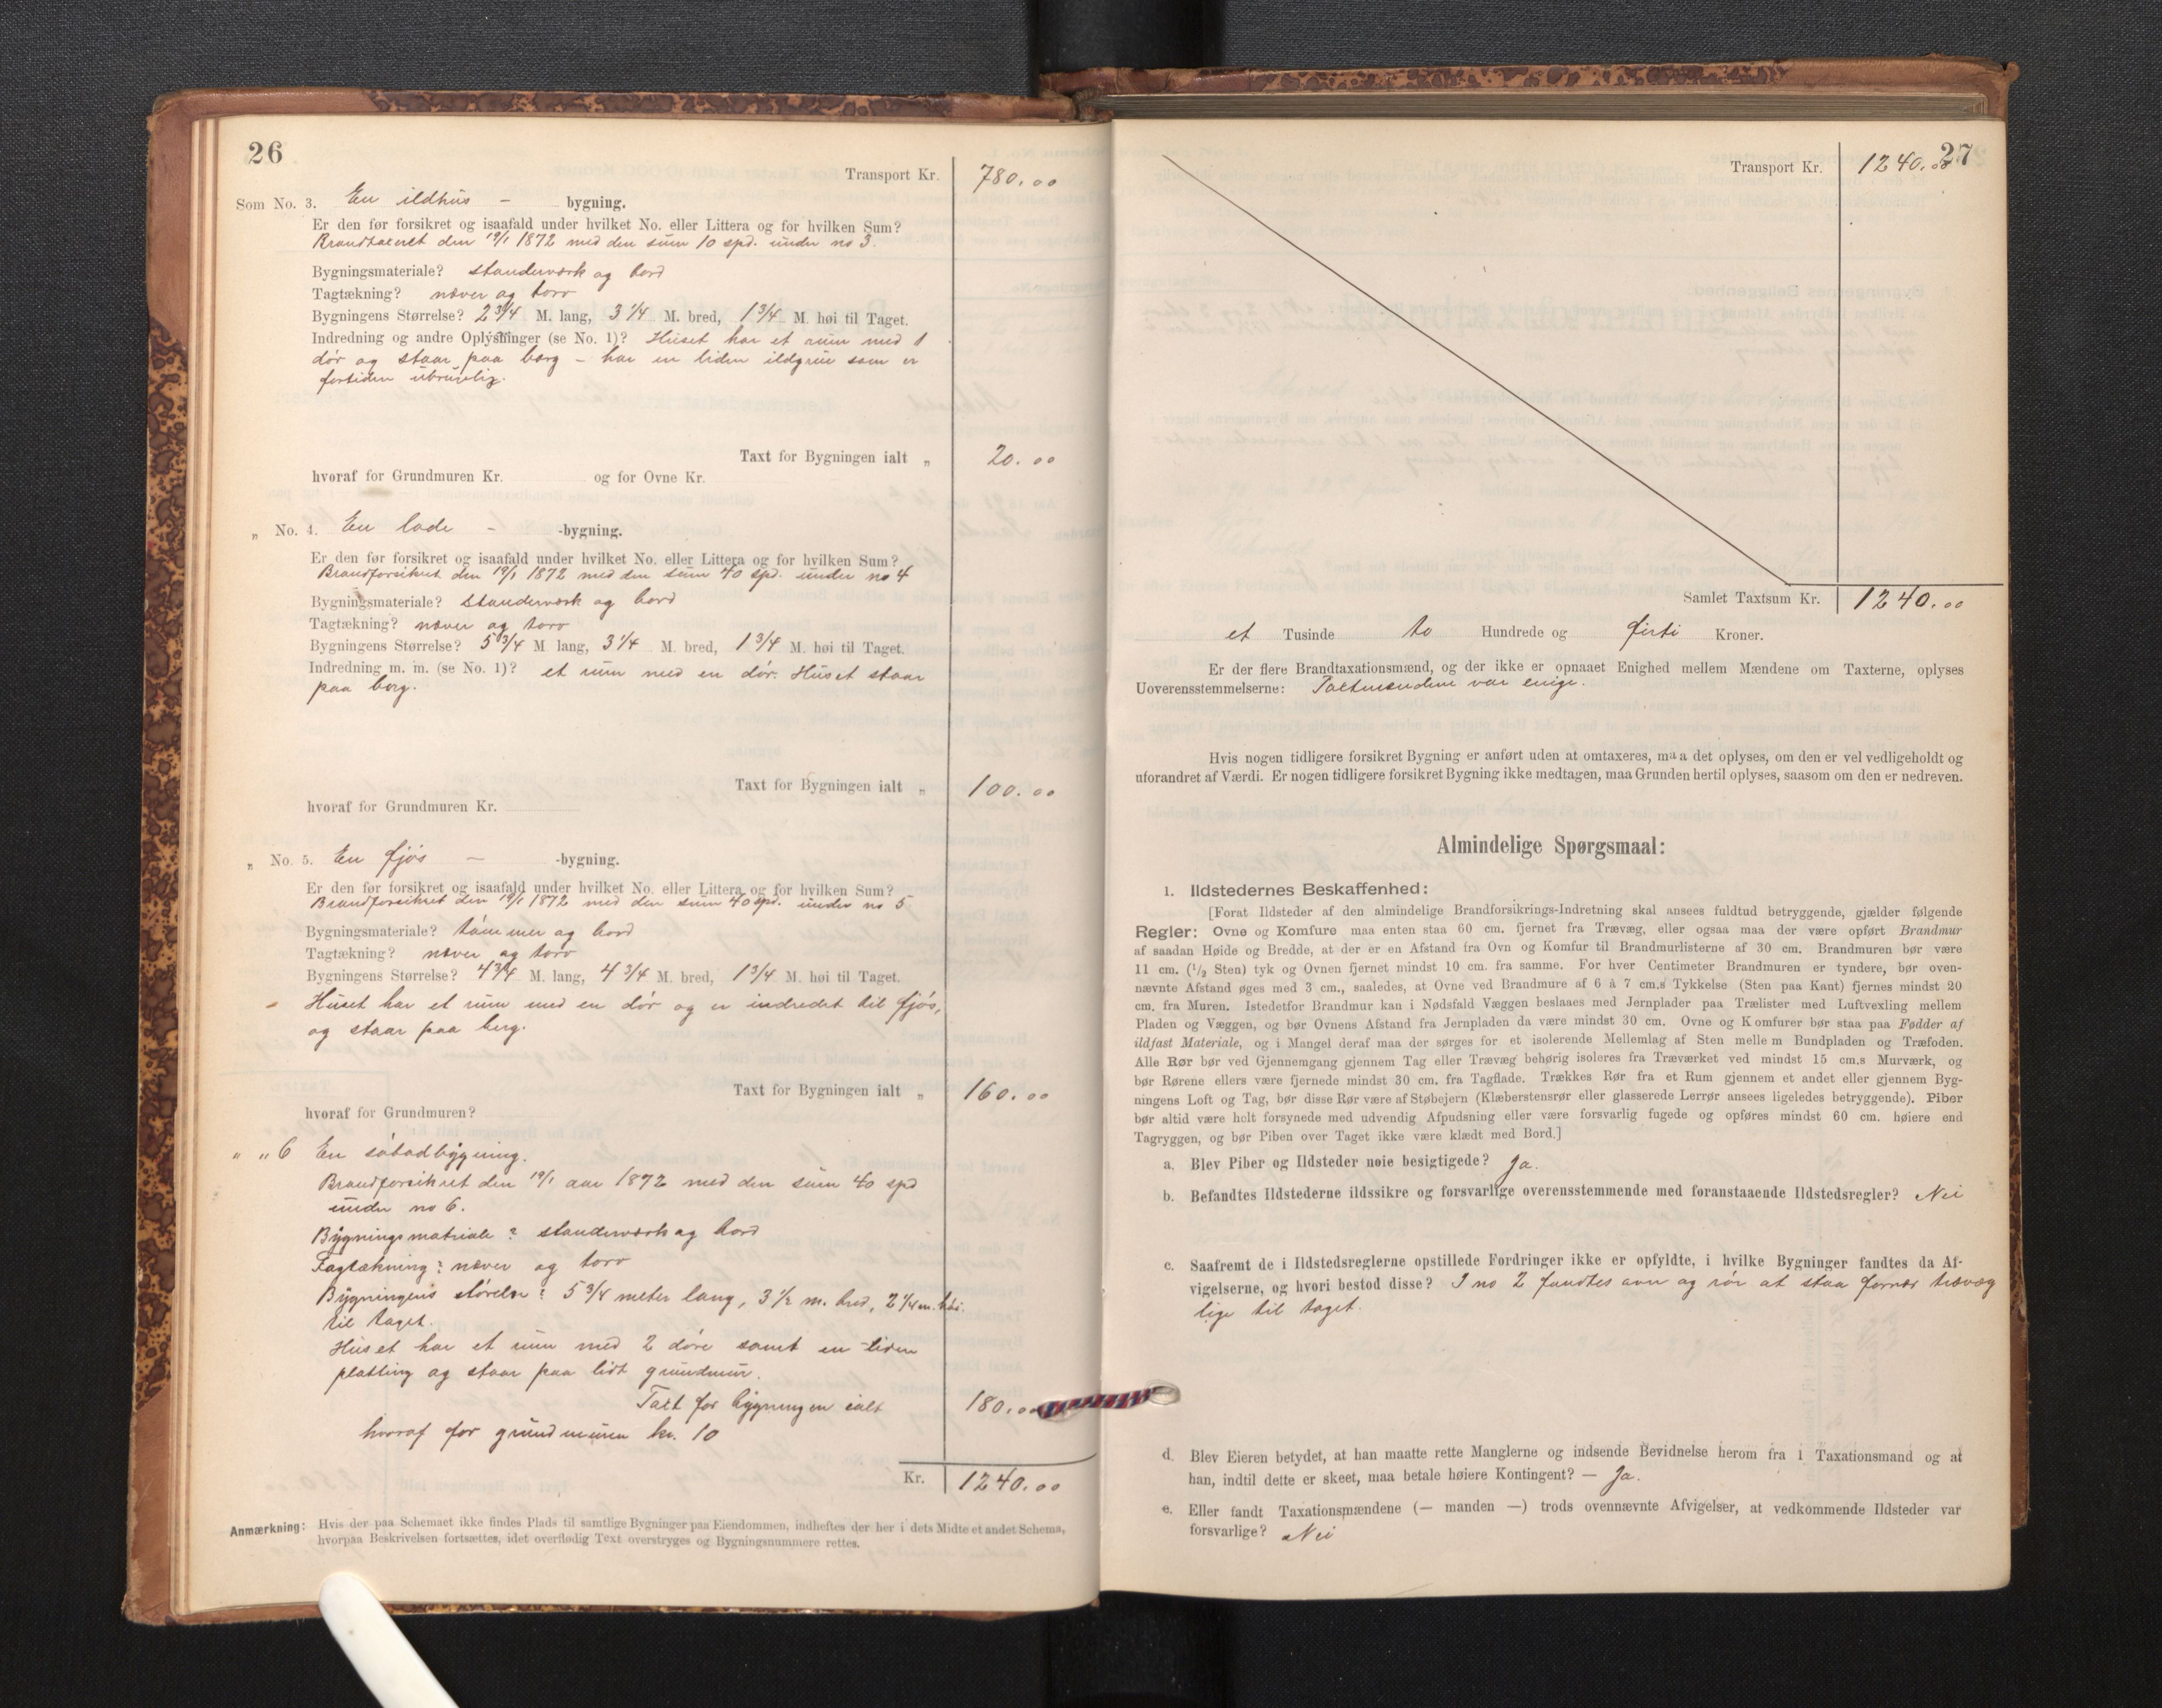 26
Transport Kr. 780.00
Som No. 3. En ildhus - bygning.
Er den før forsikret og isaafald under hvilket No. eller Littera og for hvilken Sum?
Brandtaxeret den 19/1 1872 med den sum 10 spd. under no 3.
Bygningsmateriale? standerværk og bord
Tagtækning? næver og torv
Bygningens Størrelse? 2 3/4 M. lang, 3 1/4 M. bred, 1 3/4 M. høi til Taget.
Indredning og andre Oplysninger (se No. 1)? Huset har et rum med 1
dør og staar paa berg - har en liden ildgrue som er
fortiden ubrugelig.
Taxt for Bygningen ialt „ 20.00
hvoraf for Grundmuren Kr. og for Ovne Kr.
„ No. 4. En lade - -bygning.
Er den før forsikret og isaafald under hvilket No. eller Littera og for hvilken Sum?
Brandforsikret den 19/1 1872 med den sum 40 spd. under no 4
Bygningsmateriale? standerværk og bord
Tagtækning? næver og torv
Bygningens Størrelse? 5 3/4 M lang, 3 1/4 M. bred, 1 3/4 M. høi til Taget.
Indredning m. m. (se No. 1)? et rum med en dør. Huset staar
paa berg.
Taxt for Bygningen ialt „ 100.00
hvoraf for Grundmuren Kr.
„ No. 5. En fjøs - -bygning.
Er den før forsikret og isaafald under hvilket No. eller Littera og for hvilken Sum?
Brandforsikret den 19/1 1872 med den sum 40 spd. under no 5
Bygningsmateriale? tømmer og bord
Tagtækning? næver og torv
Bygningens Størrelse? 4 3/4 M. lang, 4 3/4 M. bred, 1 3/4 M. høi til Taget.
- Huset har et rum med en dør og er indredet til fjøs,
og staar paa berg.
Taxt for Bygningen ialt „ 160.00
hvoraf for Grundmuren?
„ „ 6 En søbodbygning.
Brandforsikret den 19/1 aar 1872 med den sum 40 spd
under no 6.
Bygningsmatriale? standerværk og bord
Tagtækning? næver og torv
Bygningens størelse? 5 3/4 meter lang, 3 1/2 m. bred, 2 1/4 m. høi
til taget.
Huset har et rum med 2 døre samt en liden
platting og staar paa lidt grundmur.
Taxt for bygningen ialt 180.00
hvoraf for grundmuren kr. 10
Kr. 1240.00
Anmærkning: Hvis der paa Schemaet ikke findes Plads til samtlige Bygninger paa Eiendommen, indheftes der her i dets Midte et andet Schema,
hvorpaa Beskrivelsen fortsættes, idet overflødig Text overstryges og Bygningsnummere rettes.
27
Transport Kr. 1240.00
Samlet Taxtsum Kr. 1240.00
et Tusinde to Hundrede og firti Kroner.
Er der flere Brandtaxationsmænd, og der ikke er opnaaet Enighed mellem Mændene om Taxterne, oplyses
Uoverensstemmelserne: Taxtmændene var enige.
Hvis nogen tidligere forsikret Bygning er anført uden at omtaxeres, maa det oplyses, om den er vel vedligeholdt og
uforandret af Værdi. Er nogen tidligere forsikret Bygning ikke medtagen, maa Grunden hertil oplyses, saasom om den er nedreven.
Almindelige Spørgsmaal:
1. Ildstedernes Beskaffenhed:
[Forat Ildsteder af den almindelige Brandforsikrings-Indretning skal ansees fuldtud betryggende, gjælder følgende
Regler: Ovne og Komfure maa enten staa 60 cm. fjernet fra Trævæg, eller ogsaa maa der være opført Brandmur
af saadan Høide og Bredde, at der er en Afstand fra Ovn og Komfur til Brandmurlisterne af 30 cm. Brandmuren bør være
11 cm. (1/2 Sten) tyk og Ovnen fjernet mindst 10 cm. fra samme. For hver Centimeter Brandmuren er tyndere, bør oven-
nævnte Afstand øges med 3 cm., saaledes, at Ovne ved Brandmure af 6 à 7 cm.s Tykkelse (Sten paa Kant) fjernes mindst 20
cm. fra Muren. Istedetfor Brandmur kan i Nødsfald Væggen beslaaes med Jernplader paa Trælister med Luftvexling mellem
Pladen og Væggen, og bør Ovnens Afstand fra Jernpladen da være mindst 30 cm. Ovne og Komfurer bør staa paa Fødder af
ildfast Materiale, og i Mangel deraf maa der sørges for et isolerende Mellemlag af Sten mellem Bundpladen og Træfoden.
Alle Rør bør ved Gjennemgang gjennem Tag eller Trævæg behørig isoleres fra Træværket ved mindst 15 cm.s Murværk, og
bør Rørene ellers være fjernede mindst 30 cm. fra Tagflade. Trækkes Rør fra et Rum gjennem et andet eller gjennem Byg-
ningens Loft og Tag, bør disse Rør være af Støbejern (Klæberstensrør eller glasserede Lerrør ansees ligeledes betryggende). Piber
bør altid være helt forsynede med udvendig Afpudsning eller være forsvarlig fugede og opføres mindst 60 cm. høiere end
Tagryggen, og bør Piben over Taget ikke være klædt med Bord.]
a. Blev Piber og Ildsteder nøie besigtigede? Ja.
b. Befandtes Ildstederne ildssikre og forsvarlige overensstemmende med foranstaaende Ildstedsregler? Nei
c. Saafremt de i Ildstedsreglerne opstillede Fordringer ikke er opfyldte, i hvilke Bygninger fandtes da Af-
vigelserne, og hvori bestod disse? I no 2 fandtes ovn og rør at staa fornær trævæg
lige til taget.
d. Blev Eieren betydet, at han maatte rette Manglerne og indsende Bevidnelse herom fra 1 Taxationsmand og at
han, indtil dette er skeet, maa betale høiere Kontingent? — Ja.
e. Eller fandt Taxationsmændene (— manden —) trods ovennævnte Afvigelser, at vedkommende Ildsteder var
forsvarlige? Nei